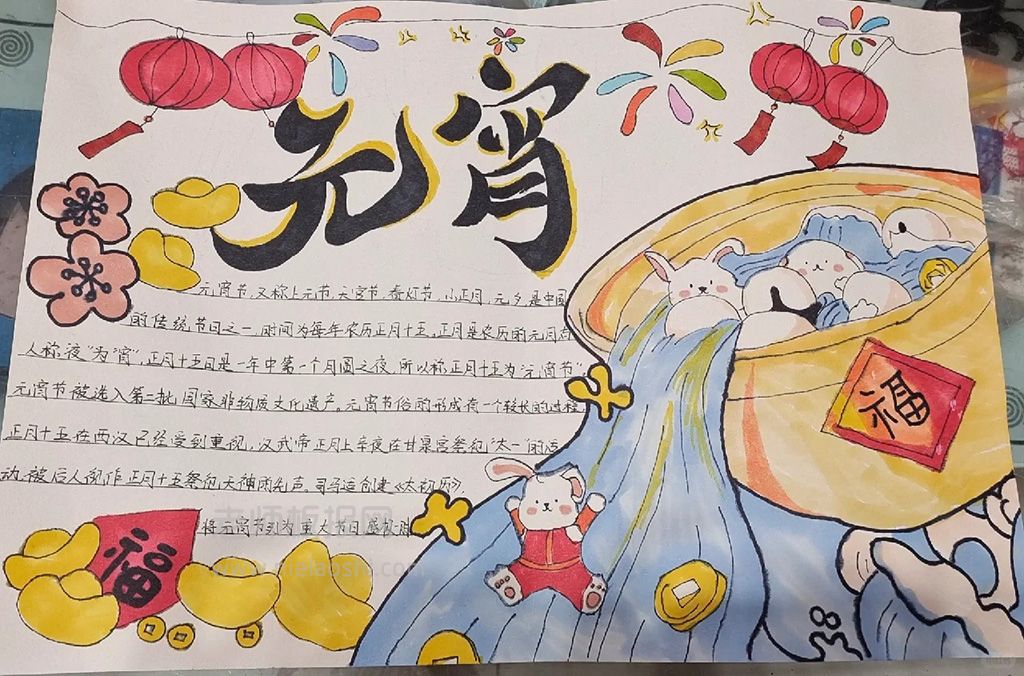 元宵
元宵节,又称上元节、天官节、春灯节、小正月、元夕,是中国
的传统节日之一,时间为每年农历正月十五,正月是农历的元月,古
人称夜“为”宵”,正月十五日是一年中第一个月圆之夜,所以称正月十五为“元宵节”
元宵节被选入第二批国家非物质文化遗产。元宵节俗的形成有一个较长的过程,
正月十五在西汉已经受到重视,汉武帝正月上辛夜在甘泉宫祭祀“太一”的活
动,被后人视作正月十五祭祀天神的先声。司马迁创建《太初历》,
将元宵节列为重大节日
福
福
老师板报网